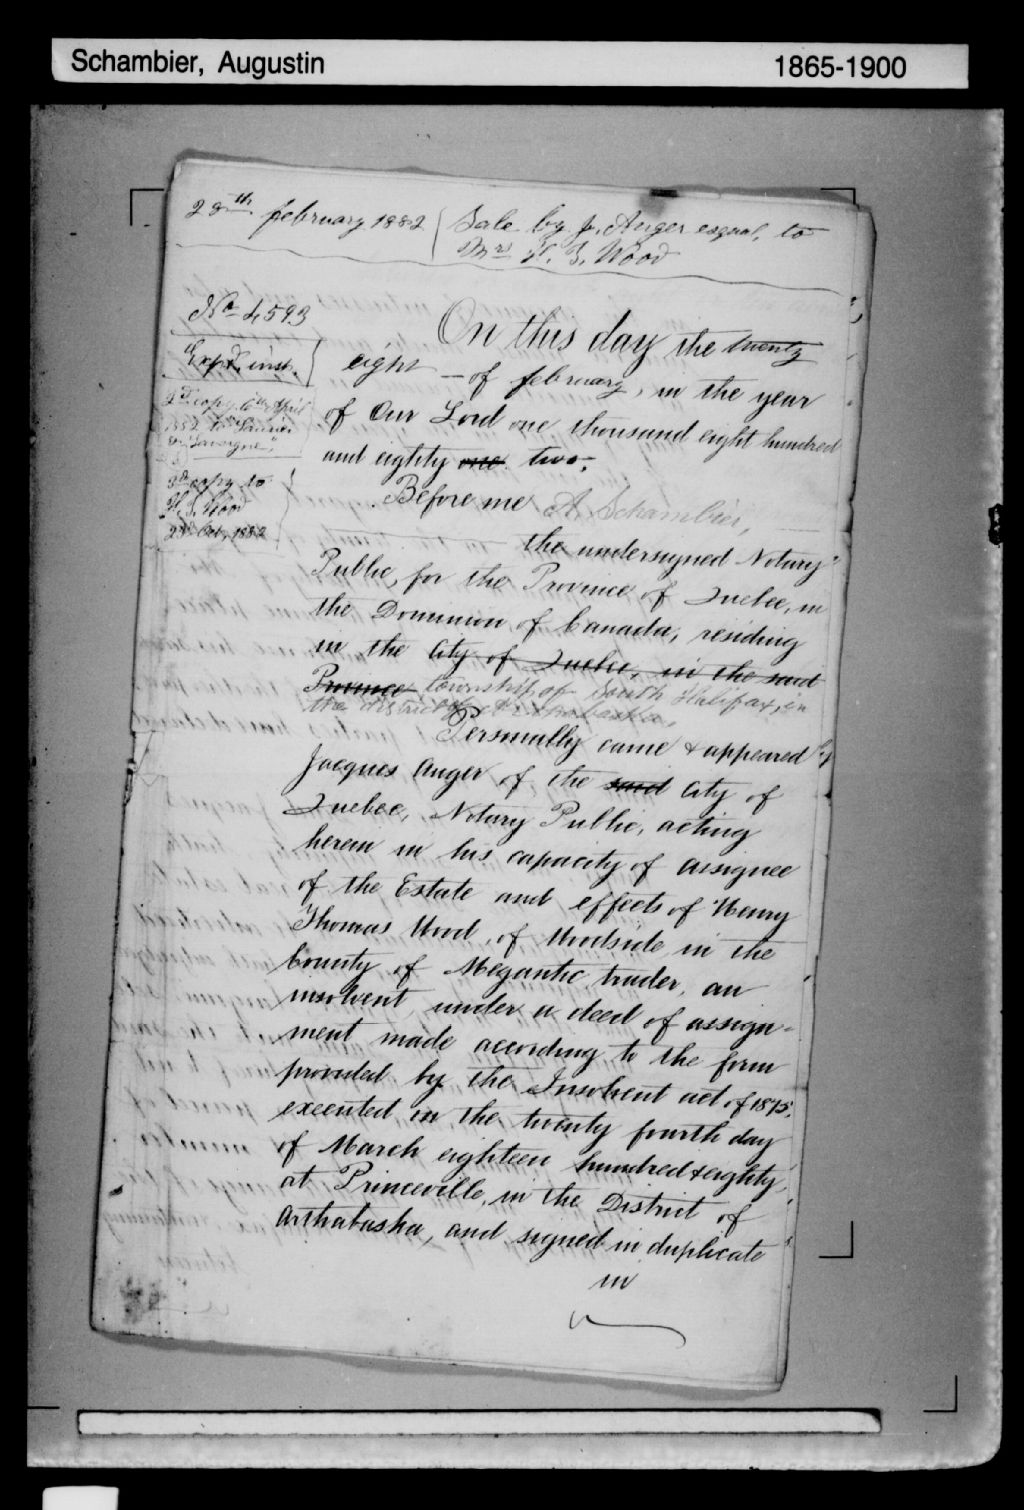 Schambier, Augustin 1865-1900
28th february 1882 Sale by J. Anger esqual, to
Mrs H. T. Wood
No 4593
Expd. inst.
2d copy 6th April
1882 to
3d copy to
H. T. Wood
23d Oct. 1882
On this day the twenty
eight – of february, in the year
of Our Lord one thousand eight hundred
and eighty one two,
Before me A. Schambier,
the undersigned Notary
Public, for the Province of Quebec, in
the Dominion of Canada, residing
in the City of Quebec, in the said
Province township of South Halifax, in
the district of Arthabaska,
Personally came & appeared
Jacques Anger of the said City of
Quebec, Notary Public, acting
herein in his capacity of assignee
of the Estate and effects of Henry
Thomas Wood, of Woodside, in the
County of Megantic, trader, an
insolvent, under a deed of assign-
ment made according to the form
provided by the Insolvent act of 1875,
executed on the twenty fourth day
of March eighteen hundred & eighty,
at Princeville, in the District of
Arthabaska, and signed in duplicate
in